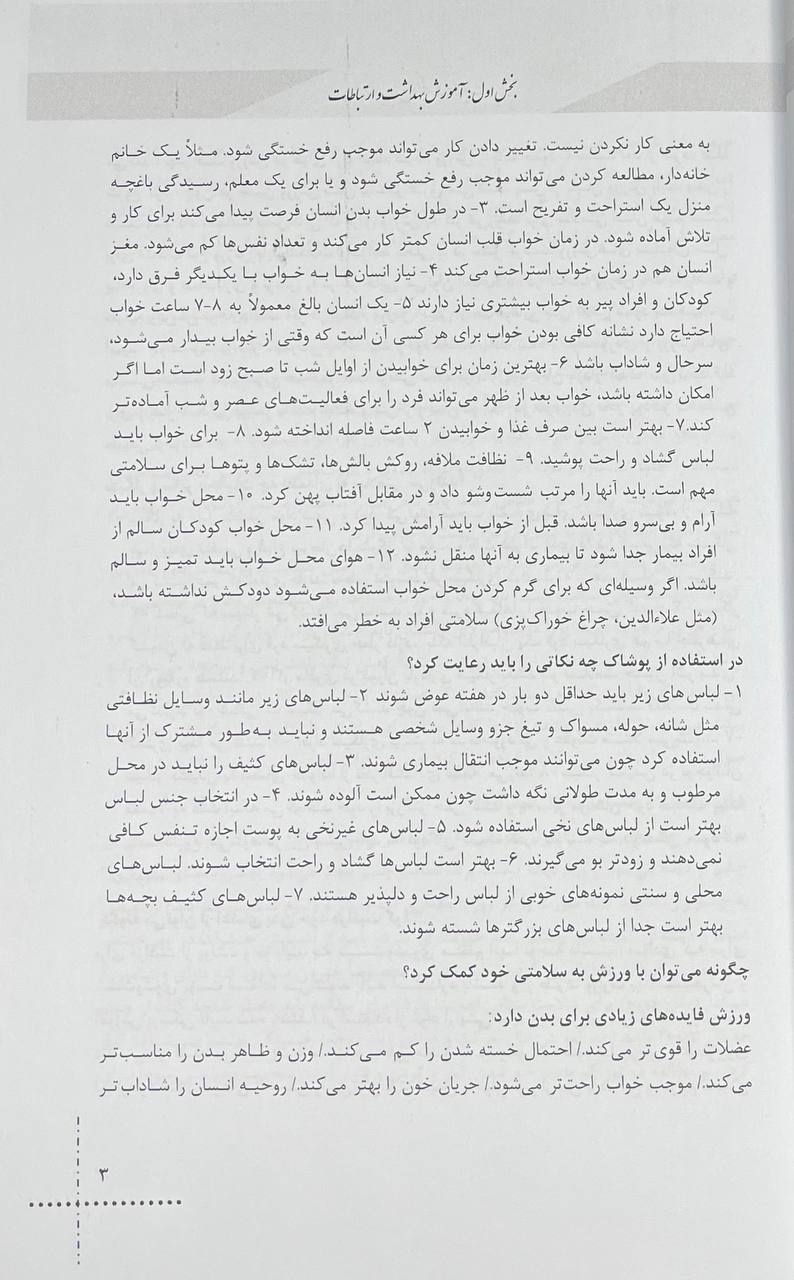 بخش اول: آموزش بهداشت و ارتباطات
به معنی کار نکردن نیست. تغییر دادن کار می‌تواند موجب رفع خستگی شود. مثلاً یک خانم
خانه‌دار، مطالعه کردن می‌تواند موجب رفع خستگی شود و یا برای یک معلم، رسیدگی باغچه
منزل یک استراحت و تفریح است. ۳- در طول خواب بدن انسان فرصت پیدا می‌کند برای کار و
تلاش آماده شود. در زمان خواب قلب انسان کمتر کار می‌کند و تعداد نفس‌ها کم می‌شود. مغز
انسان هم در زمان خواب استراحت می‌کند ۴- نیاز انسان‌ها به خواب با یکدیگر فرق دارد،
کودکان و افراد پیر به خواب بیشتری نیاز دارند ۵- یک انسان بالغ معمولاً به ۸-۷ ساعت خواب
احتیاج دارد نشانه کافی بودن خواب برای هر کسی آن است که وقتی از خواب بیدار می‌شود،
سرحال و شاداب باشد ۶- بهترین زمان برای خوابیدن از اوایل شب تا صبح زود است اما اگر
امکان داشته باشد، خواب بعد از ظهر می‌تواند فرد را برای فعالیت‌های عصر و شب آماده‌تر
کند.۷- بهتر است بین صرف غذا و خوابیدن ۲ ساعت فاصله انداخته شود. ۸- برای خواب باید
لباس گشاد و راحت پوشید. ۹- نظافت ملافه، روکش بالش‌ها، تشک‌ها و پتوها برای سلامتی
مهم است. باید آنها را مرتب شست‌وشو داد و در مقابل آفتاب پهن کرد. ۱۰- محل خواب باید
آرام و بی‌سرو صدا باشد. قبل از خواب باید آرامش پیدا کرد. ۱۱- محل خواب کودکان سالم از
افراد بیمار جدا شود تا بیماری به آنها منقل نشود. ۱۲- هوای محل خواب باید تمیز و سالم
باشد. اگر وسیله‌ای که برای گرم کردن محل خواب استفاده می‌شود دودکش نداشته باشد،
(مثل علاءالدین، چراغ خوراک‌پزی) سلامتی افراد به خطر می‌افتد.
در استفاده از پوشاک چه نکاتی را باید رعایت کرد؟
۱- لباس‌های زیر باید حداقل دو بار در هفته عوض شوند ۲- لباس‌های زیر مانند وسایل نظافتی
مثل شانه، حوله، مسواک و تیغ جزو وسایل شخصی هستند و نباید به‌طور مشترک از آنها
استفاده کرد چون می‌توانند موجب انتقال بیماری شوند. ۳- لباس‌های کثیف را نباید در محل
مرطوب و به مدت طولانی نگه داشت چون ممکن است آلوده شوند. ۴- در انتخاب جنس لباس
بهتر است از لباس‌های نخی استفاده شود. ۵- لباس‌های غیرنخی به پوست اجازه تنفس کافی
نمی‌دهند و زودتر بو می‌گیرند. ۶- بهتر است لباس‌ها گشاد و راحت انتخاب شوند. لباس‌های
محلی و سنتی نمونه‌های خوبی از لباس راحت و دلپذیر هستند. ۷- لباس‌های کثیف بچه‌ها
بهتر است جدا از لباس‌های بزرگترها شسته شوند.
چگونه می‌توان با ورزش به سلامتی خود کمک کرد؟
ورزش فایده‌های زیادی برای بدن دارد:
عضلات را قوی‌تر می‌کند./ احتمال خسته شدن را کم می‌کند./ وزن و ظاهر بدن را مناسب‌تر
می‌کند./ موجب خواب راحت‌تر می‌شود./ جریان خون را بهتر می‌کند./ روحیه انسان را شاداب‌تر
۳